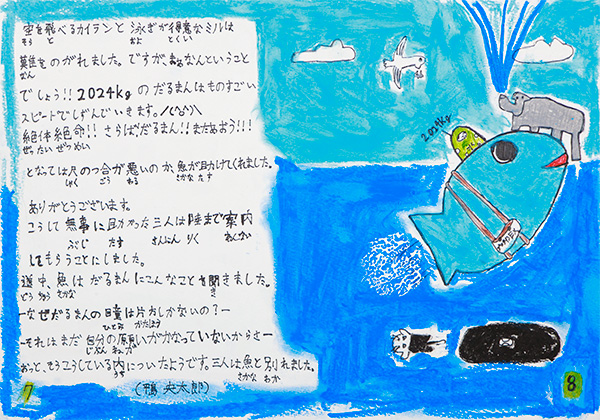 難をのがれました。ですが、まぁなんということ
なん
でしょう!!2024kgのだるまんはものすごい
スピードでしずんでいきます。\(^o^)\
絶体絶命!!さらばだるまん!!またあおう!!!
ぜったいぜつめい
となっては尺のつ合が悪いのか、魚が助けてくれました。
しゃく ごう わる さかな たす
ありがとうございます。
こうして無事に助かった三人は陸まで案内
ぶじ たす さんにん りく あんない
してもらうことにしました。
道中、魚はだるまんにこんなことを聞きました。
どうちゅう さかな き
ーなぜだるまんの瞳は片方しかないの?ー
ひとみ かたほう
ーそれはまだ自分の願いがかなっていないからさー
じぶん ねが
おっと、そうこうしている内についたようです。三人は魚と別れました。
うち さかな わか
7
(鴨 央太郎)
2024kg
8